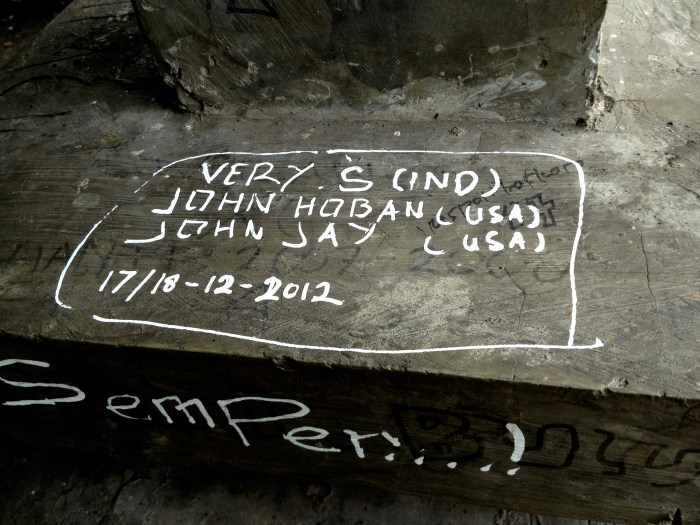 VERY. S (IND)
JOHN HOBAN (USA)
JOHN JAY (USA)
17/18-12-2012
SemPer:....!